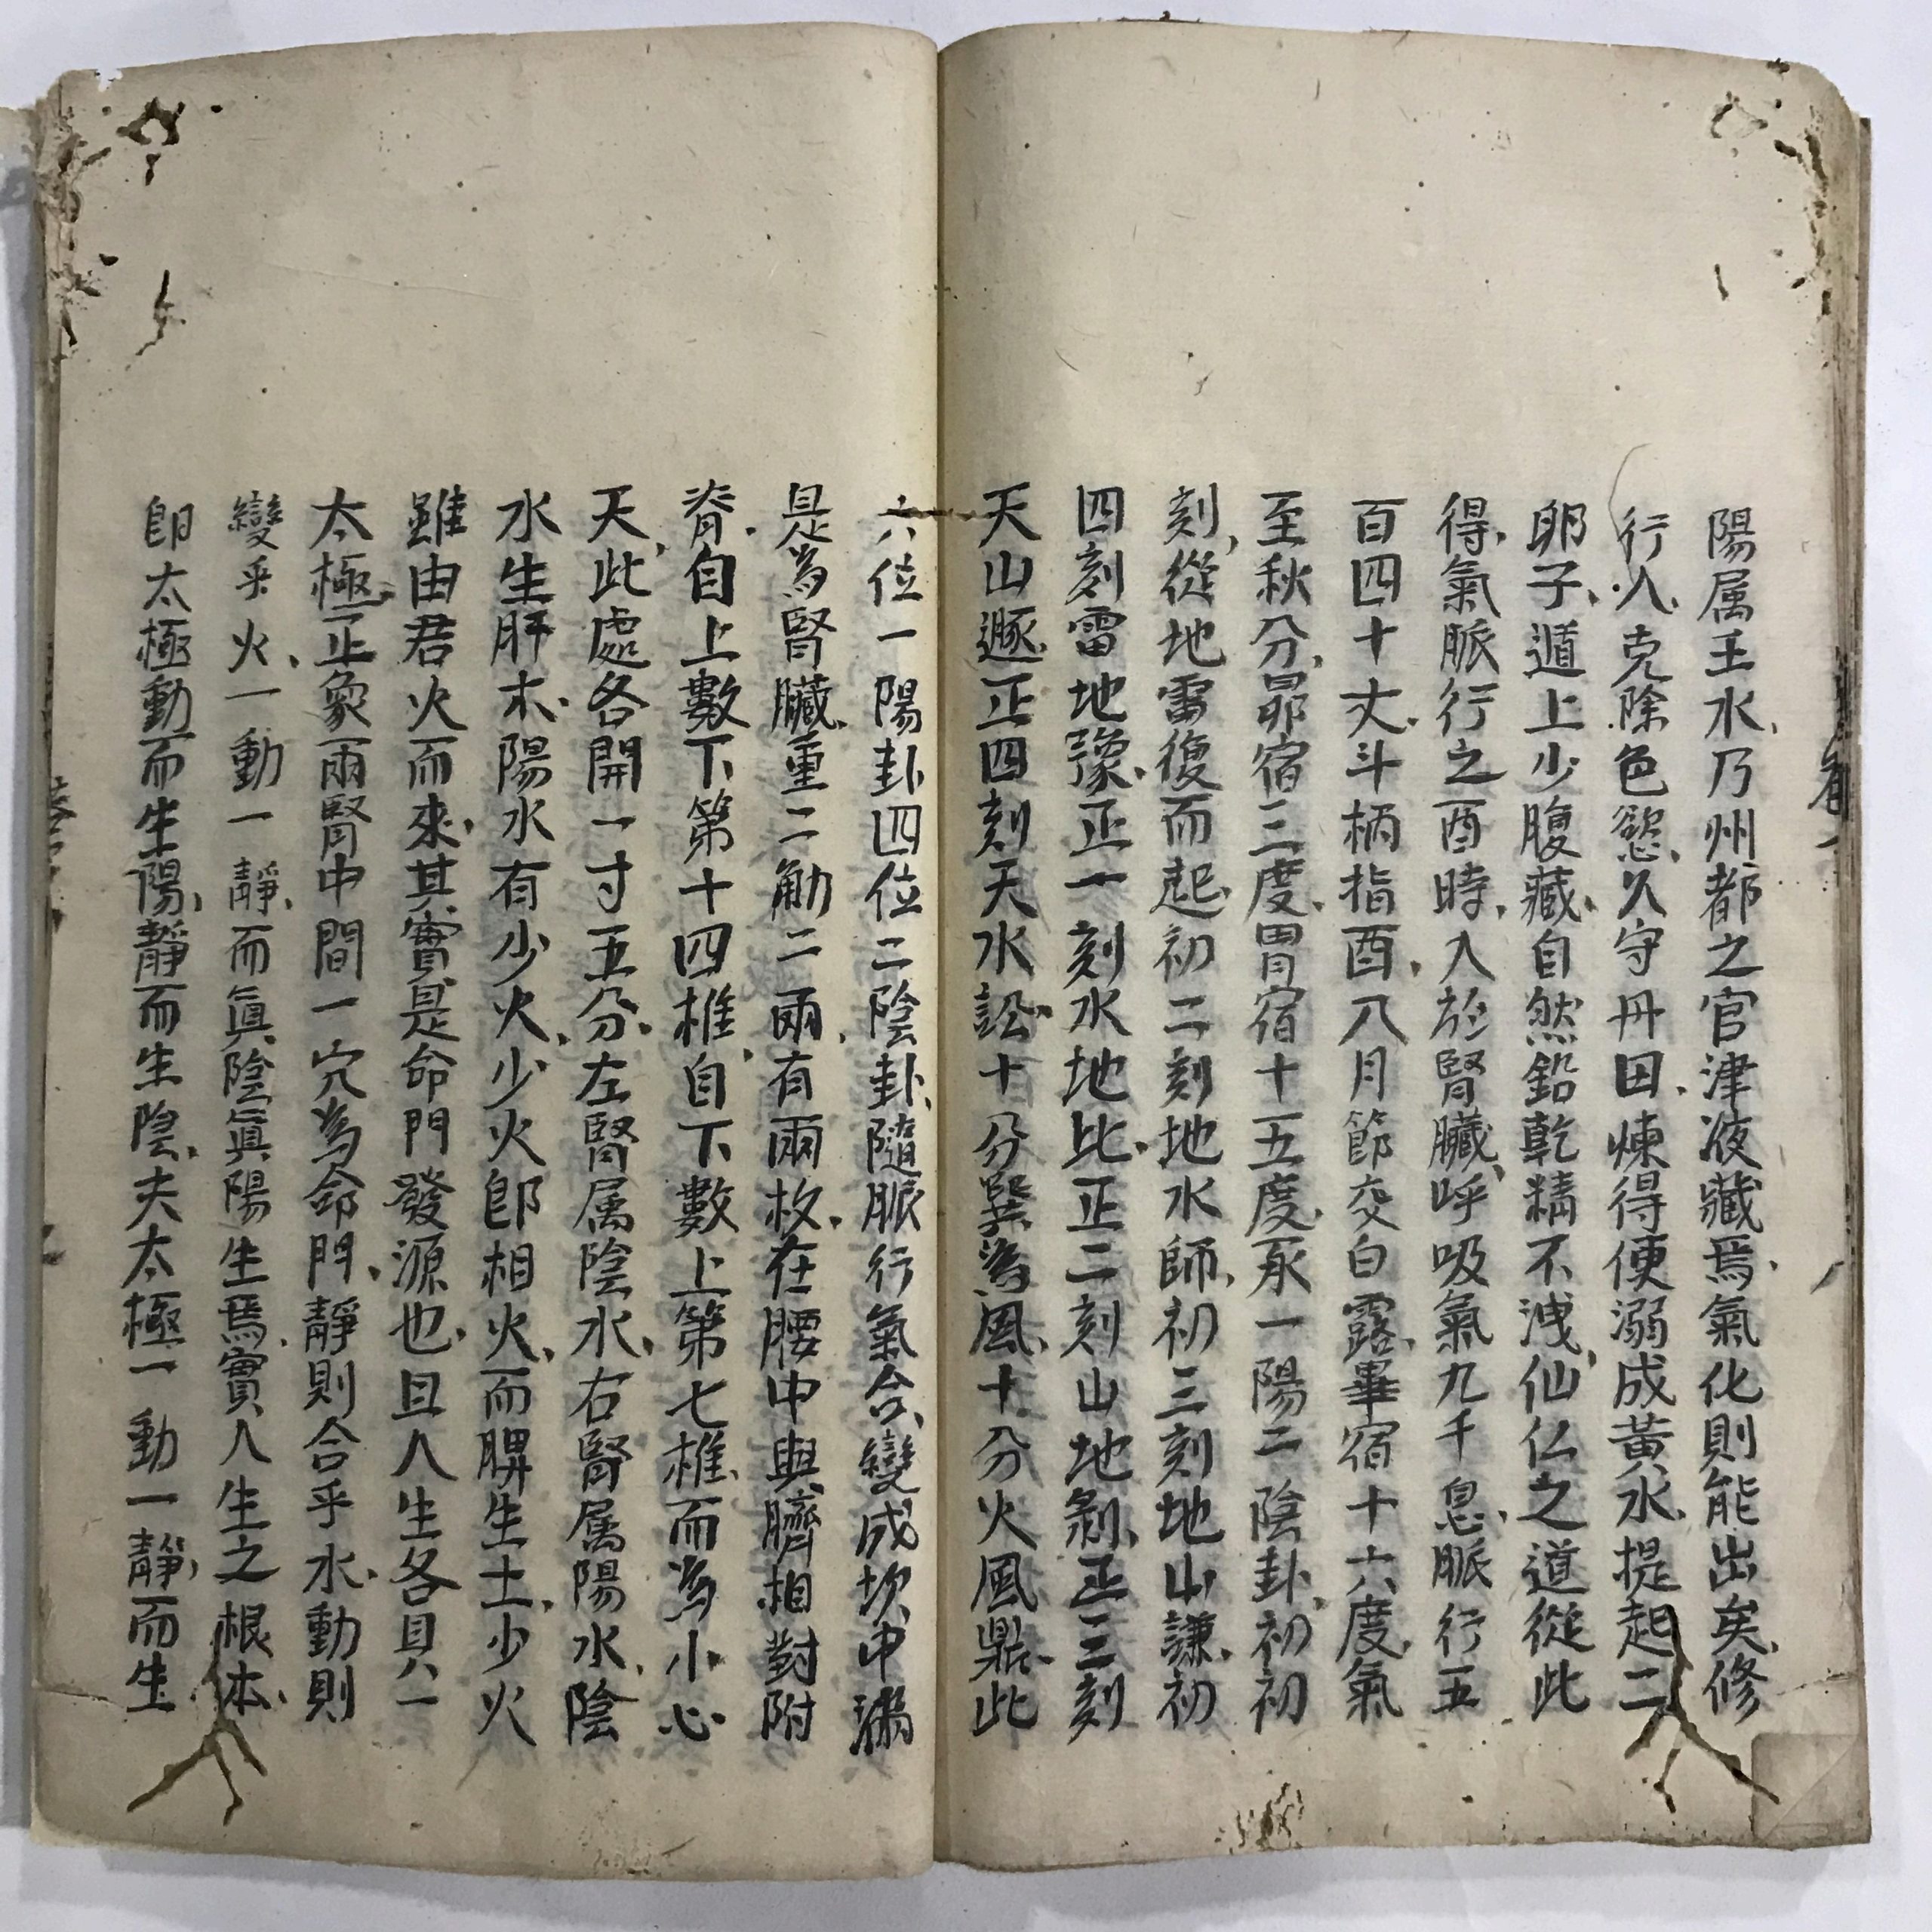 陽属王水、乃州都之官津液藏焉、氣化則能出矣、修
行人、克除色慾、久守丹田、煉得便溺成黃水、提起二
卵子、遁上少腹藏、自然鉛乾精不洩、仙仏之道從此
得、氣脈行之酉時、入於腎臟、呼吸氣九千息、脈行五
百四十丈、斗柄指酉、八月節交白露、畢宿十六度、氣
至秋分、昴宿三度、胃宿十五度、承一陽二陰卦、初初
刻、從地雷復而起、初二刻地水師、初三刻地山謙、初
四刻雷地豫、正一刻水地比、正二刻山地剝、正三刻
天山遯、正四刻天水訟、十分巽為風、十分火風鼎、此
六位一陽卦四位二陰卦、隨脈行氣合、變成坎中滿
是為腎臟、重二觔二兩、有兩枚、在腰中與臍相對附
脊、自上數下第十四椎、自下數上第七椎、而為小心
天、此處各開一寸五分、左腎属陰水、右腎属陽水、陰
水生肝木、陽水有少火、少火即相火、而脾生土、少火
雖由君火而來、其實是命門發源也、且人生各具一
太極、正象兩腎中間一穴為命門、靜則合乎水、動則
變乎火、一動一靜、而眞陰眞陽生焉、實人生之根本、
即太極動而生陽、靜而生陰、夫太極一動一靜、而生